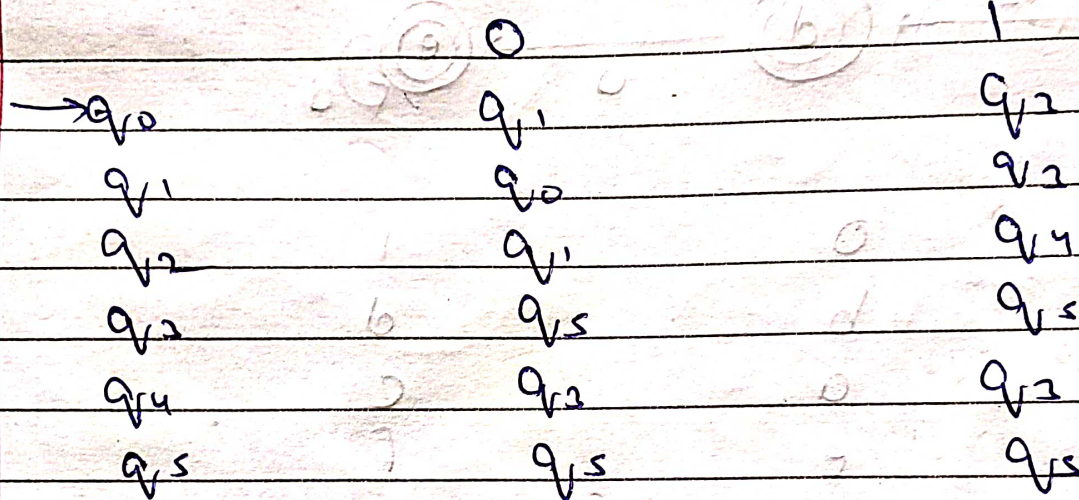 0 1
→q0 q1 q3
q1 q0 q3
q2 q1 q4
q3 q5 q5
q4 q3 q3
q5 q5 q5